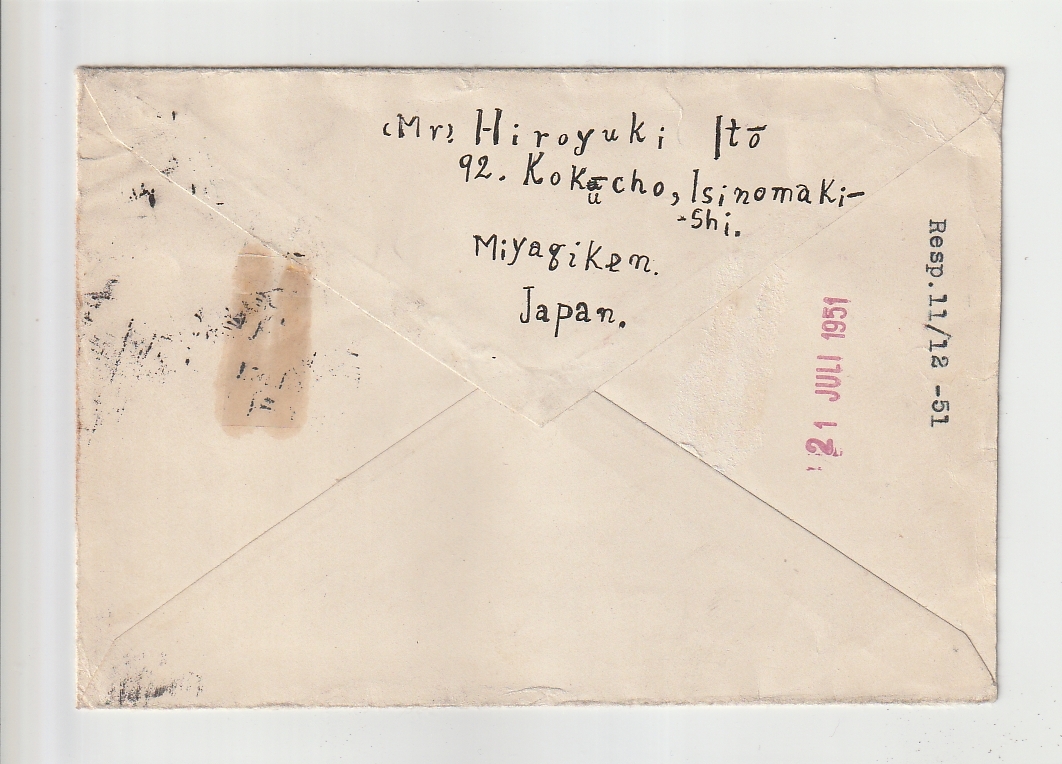 (Mr) Hiroyuki Itō
92. Kokūcho, Isinomaki-
-Shi.
Miyagiken.
Japan.
21 JULI 1951
Resp.11/12 -51